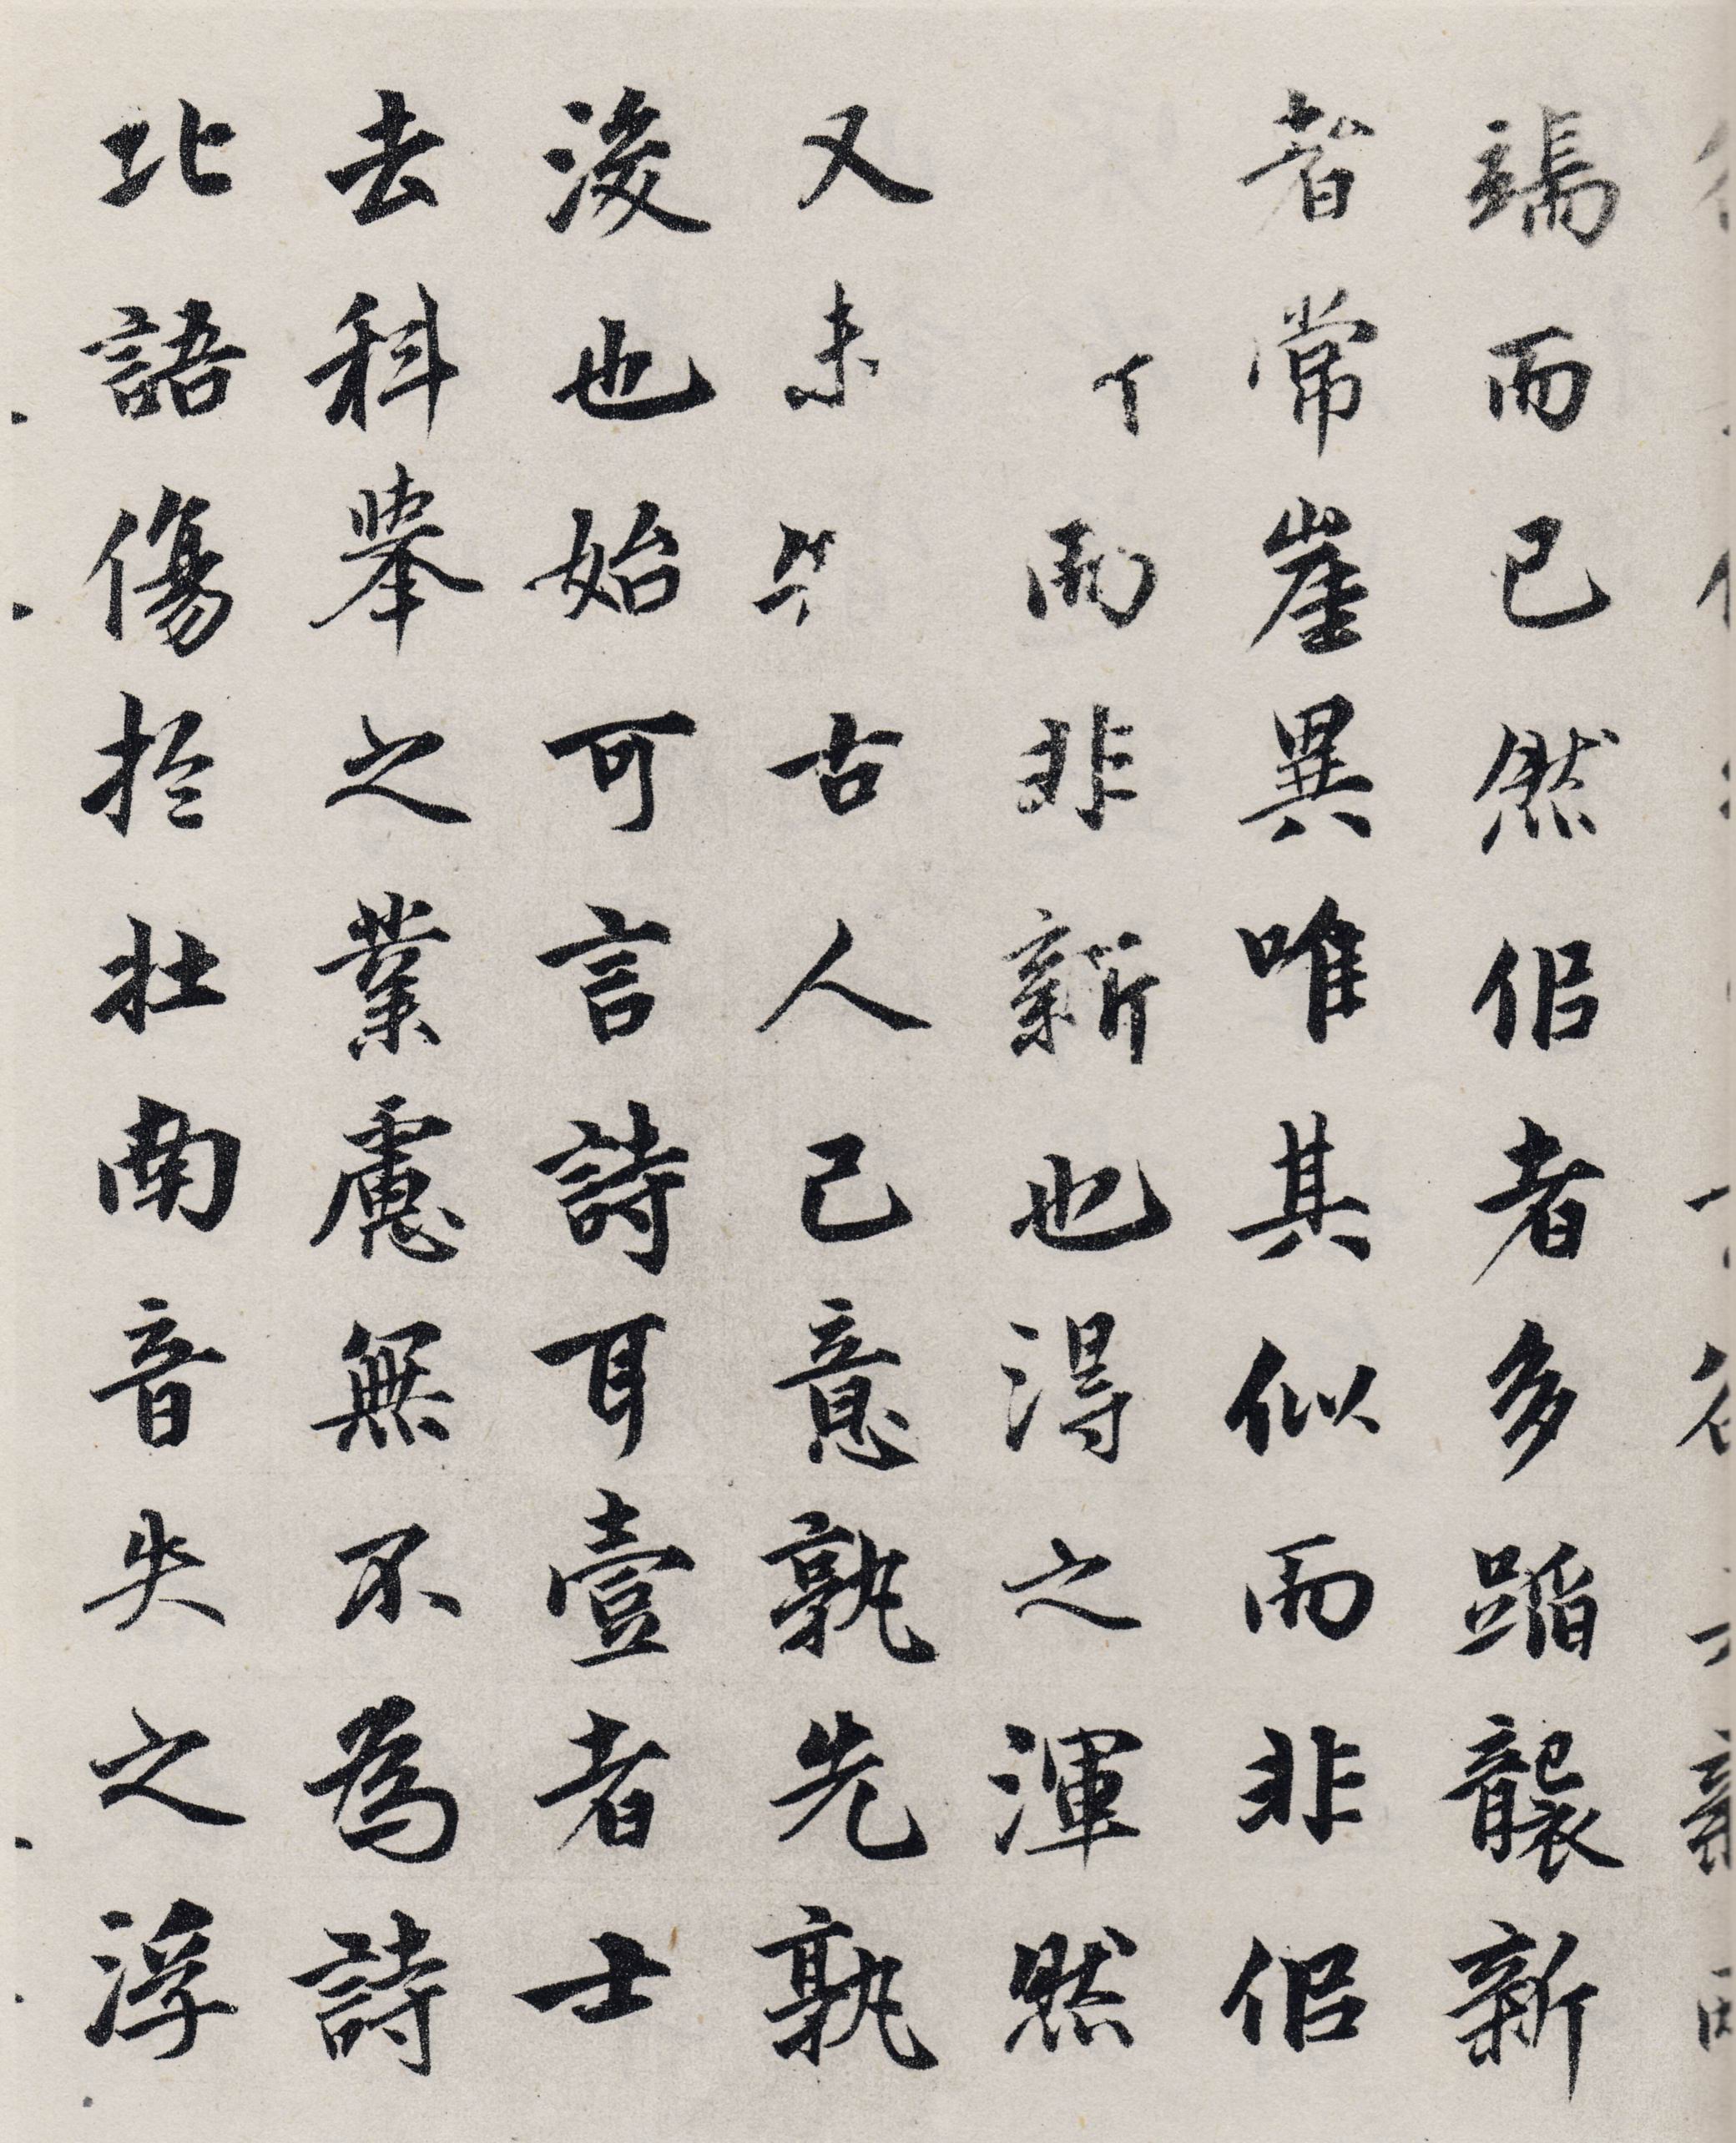 端而已然佀者多蹈襲新
者常崖異唯其似而非佀
而非新也得之渾然
又未古人己意孰先孰
後也始可言詩耳壹者士
去科舉之業慮無不為詩
北語傷於壯南音失之浮